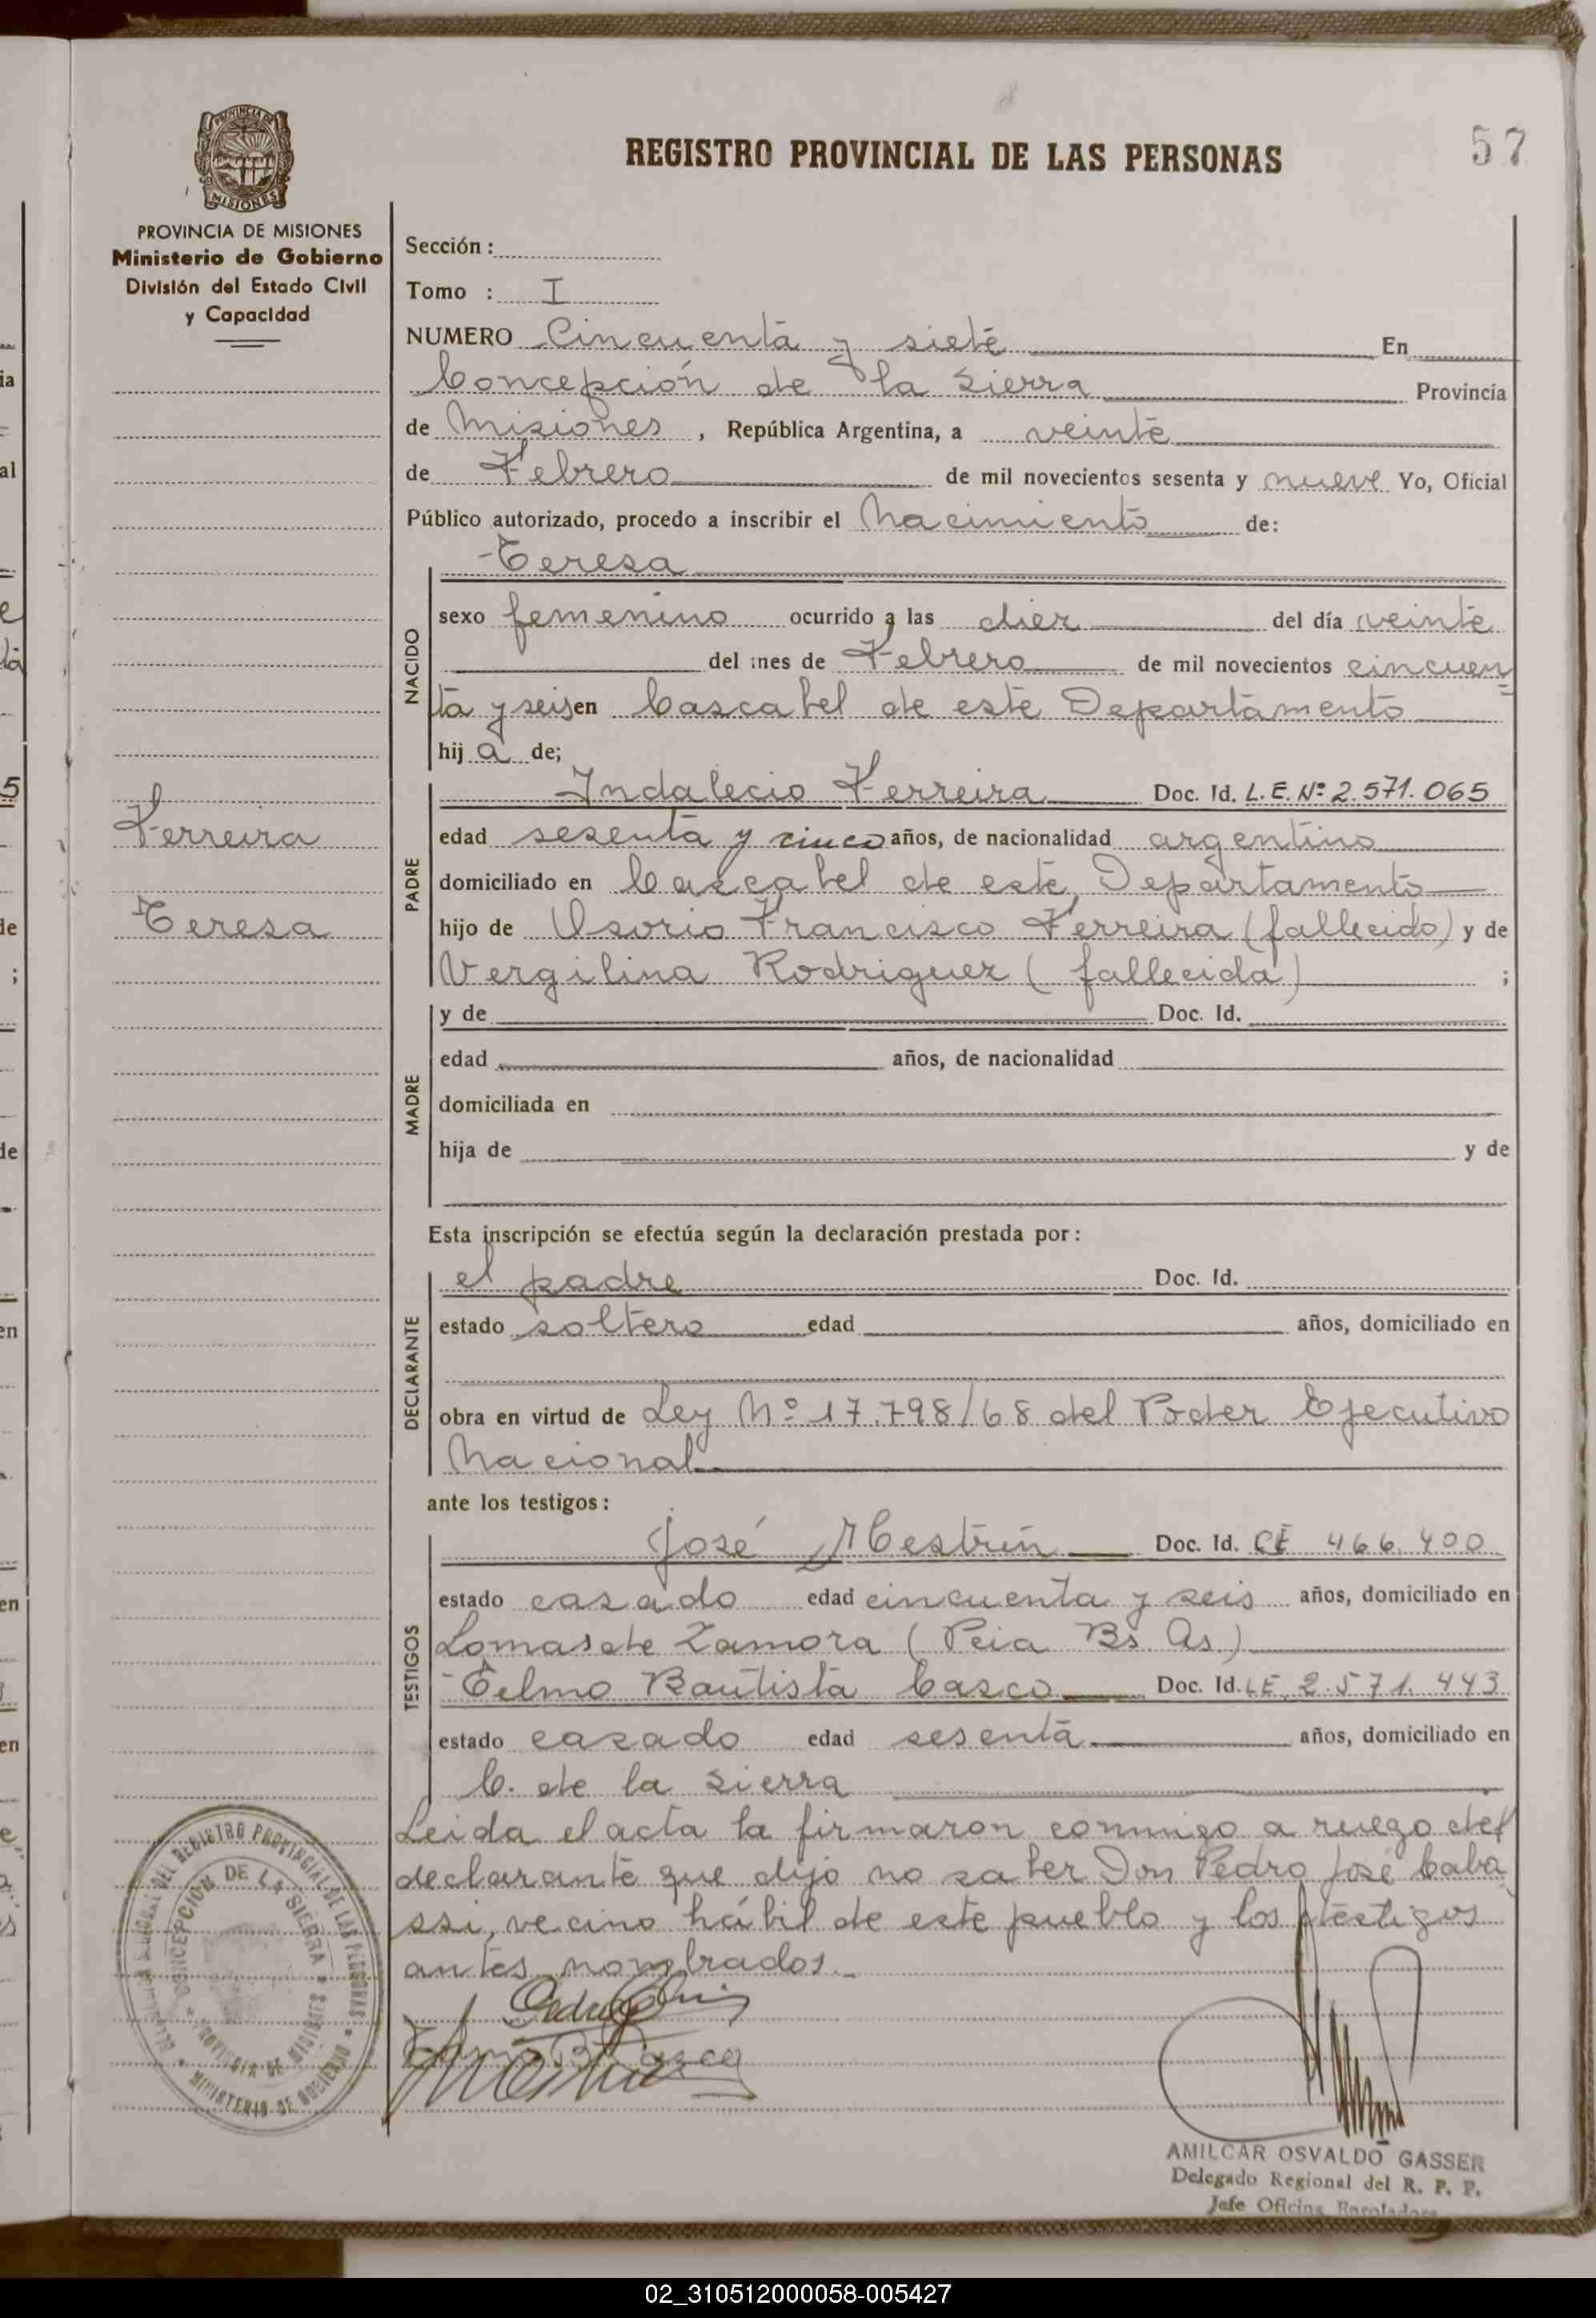 57
REGISTRO PROVINCIAL DE LAS PERSONAS
PROVINCIA DE MISIONES
Ministerio de Gobierno
División del Estado Civil
y Capacidad
Sección :
Tomo : I
NUMERO Cincuenta y siete En
Concepción de la Sierra Provincia
de Misiones , República Argentina, a veinte
de Febrero de mil novecientos sesenta y nueve Yo, Oficial
Público autorizado, procedo a inscribir el Nacimiento de:
Teresa
NACIDO
sexo femenino ocurrido a las diez del día veinte
del mes de Febrero de mil novecientos cincuen
ta y seis en Cascabel de este Departamento
hij a de;
PADRE
Indalecio Ferreira Doc. Id. L.E. Nº 2.571.065
Ferreira
edad sesenta y cinco años, de nacionalidad argentino
domiciliado en Cascabel de este Departamento
Teresa
hijo de Osorio Francisco Ferreira (fallecido) y de
Vergilina Rodriguez (fallecida) ;
MADRE
y de Doc. Id.
edad años, de nacionalidad
domiciliada en
hija de y de
Esta inscripción se efectúa según la declaración prestada por :
DECLARANTE
el padre Doc. Id.
estado soltero edad años, domiciliado en
obra en virtud de Ley Nº 17.798/68 del Poder Ejecutivo
Nacional
ante los testigos :
TESTIGOS
José Mestrin Doc. Id. CE 466.400
estado casado edad cincuenta y seis años, domiciliado en
Lomas de Zamora (Pcia Bs. As.)
Telmo Bautista Casco Doc. Id. LE 2.571.443
estado casado edad sesenta años, domiciliado en
C. de la Sierra
Leida el acta la firmaron conmigo a ruego del
declarante que dijo no saber Don Pedro José Caba
ssi, vecino hábil de este pueblo y los testigos
antes nombrados.
DEL REGISTRO PROVINCIAL DE LAS PERSONAS
CONCEPCION DE LA SIERRA
PROVINCIA DE MISIONES
MINISTERIO DE GOBIERNO
AMILCAR OSVALDO GASSER
Delegado Regional del R. P. P.
Jefe Oficina Enroladora
02_310512000058-005427